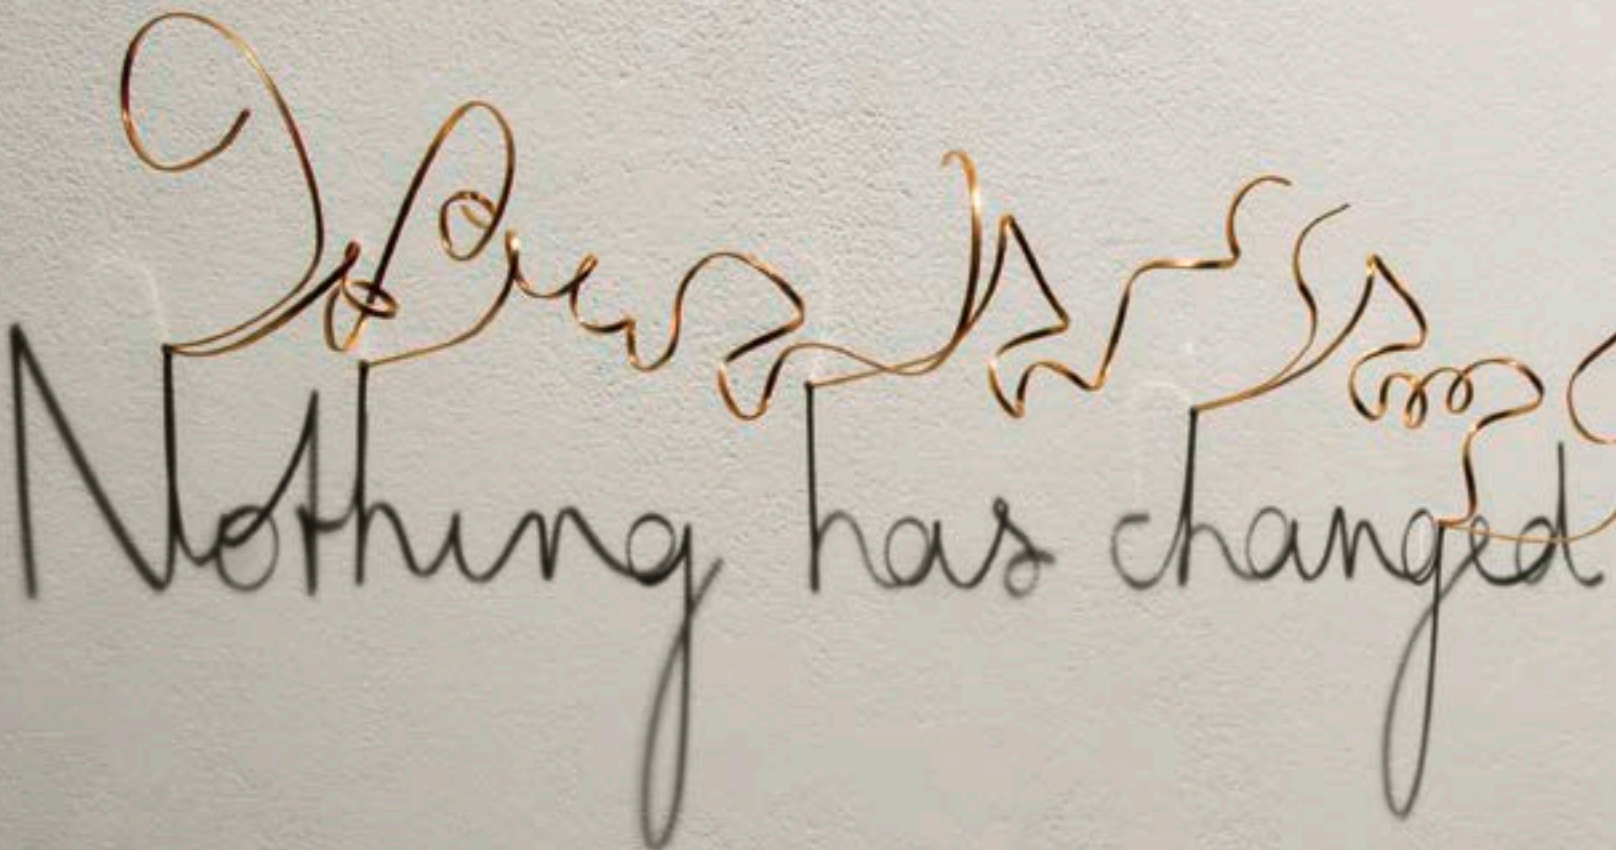 Nothing has changed